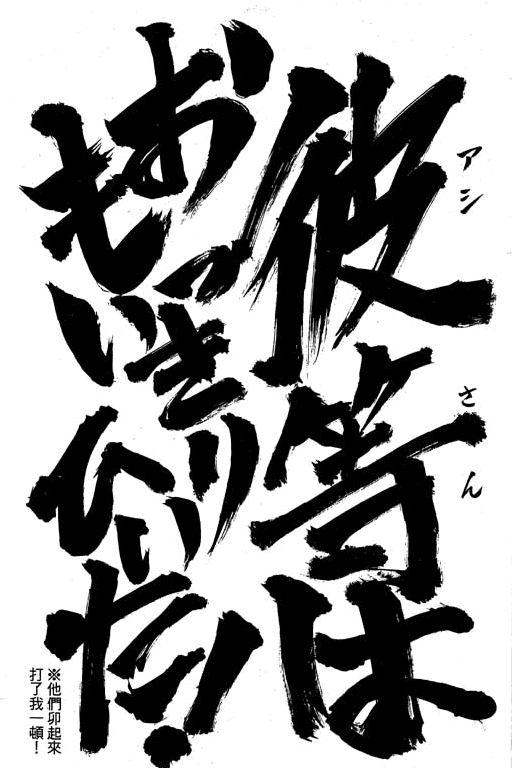 彼等は
アシ
さん
おもいっきりひいた!
※他們卯起來
打了我一頓!